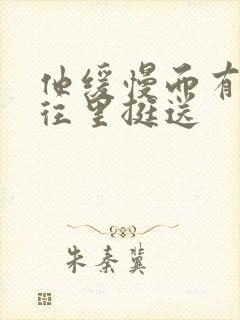 他缓慢而有
往里挺送
朱秦冀